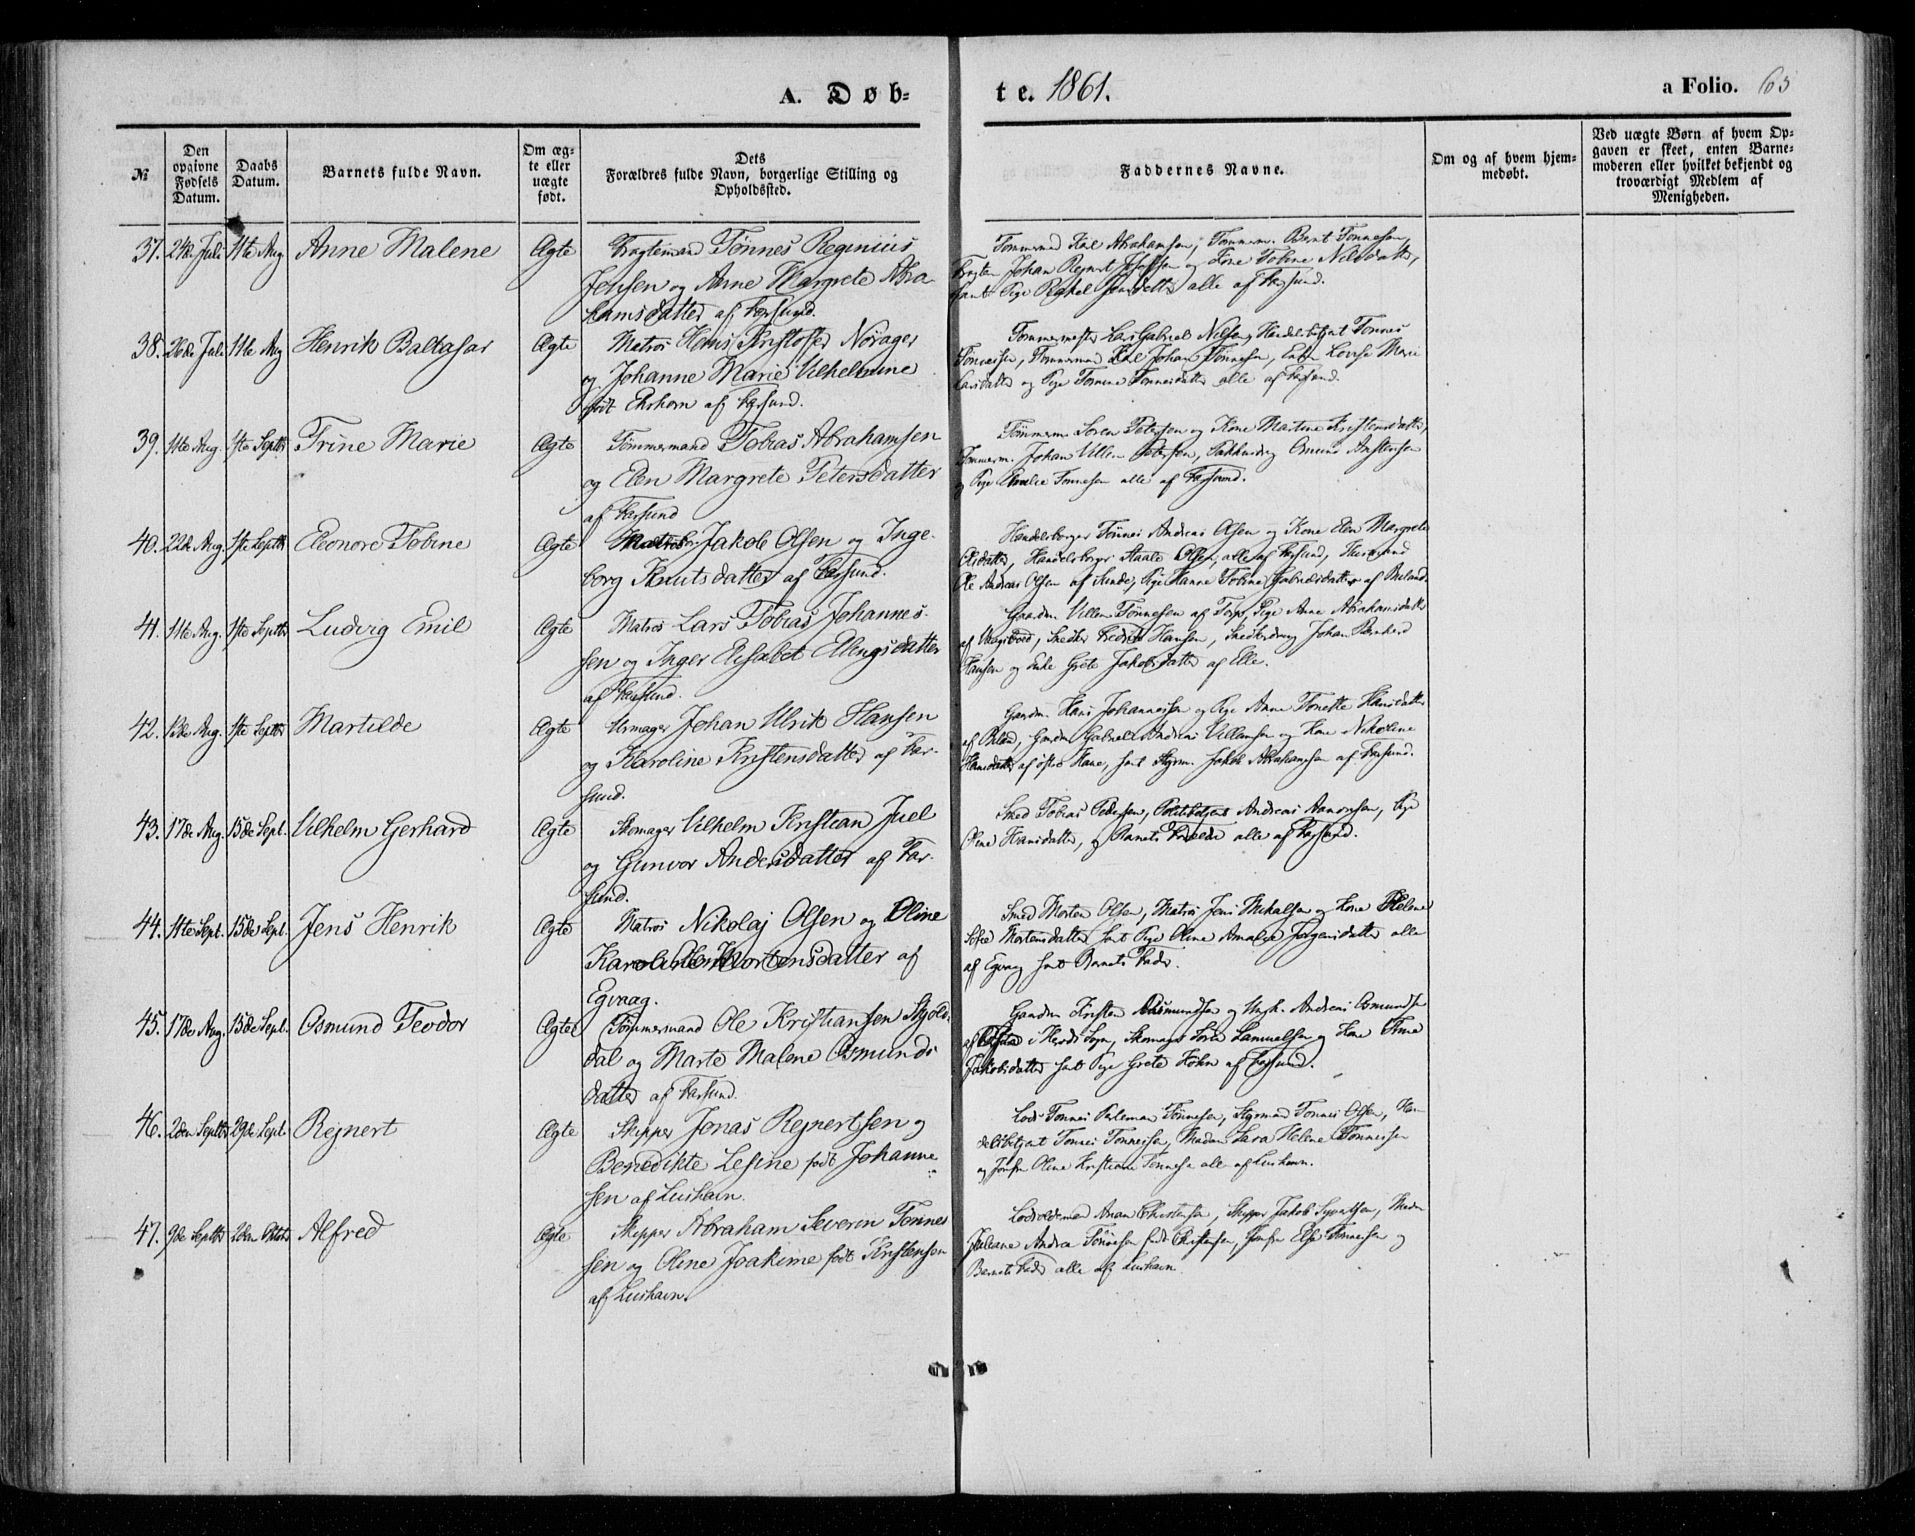 A. Døb-
te. 1861.
a Folio. 63
№
Den opgivne Fødsels Datum.
Daabs Datum.
Barnets fulde Navn.
Om ægte eller uægte født.
Dets Forældres fulde Navn, borgerlige Stilling og Opholdssted.
Faddernes Navne.
Om og af hvem hjemmedøbt.
Ved uægte Børn af hvem Opgaven er skeet, enten Barnemoderen eller hvilket bekjendt og troværdigt Medlem af Menigheden.
37. 24de Juli 11te Aug Anne Malene Ægte Tønnes Reginius
Jensen og Anne Margrete Abra-
hamsdatter af Farsund.
Tømmermd Karl Abrahamsen, Tømmerm. Bernt Tønnesen,
Johan Rejnert og Tobine Nilsdatter,
samt Pige Rakel alle af Farsund.
38. 26de Juli 11te Aug Henrik Baltasar Ægte Matros Hans Kristofer Nørager
og Johanne Marie Vilhelmine
født af Farsund.
Tømmermester Lars Gabriel Nilsen, Handelsbetjent Tønnes
Tønnessen, Tømmermand Karl Johan Tønnesen, Enke Lovise Marie
Larsdatter og Pige Tomine Tønnesdatter alle af Farsund.
39. 11te Aug. 1ste Septbr Trine Marie Ægte Tømmermand Tobias Abrahamsen
og Elen Margrete Petersdatter
af Farsund
Tømmerm. Søren Petersen og Kone Martine Kristensdatter,
Tømmerm. Johan Villem Petersen, Osmund
og Pige Tønnesen alle af Farsund.
40. 22de Aug. 1ste Septbr Eleonore Tobine Ægte Jakob Olsen og Inge-
borg Knutsdatter af Farsund.
Handelsborger Tønnes Andreas Olsen og Kone Elen Margrete
Olsdatter, Handelsborger Staale Olsen, alle af Farsund,
Ole Andreas Olsen af Sunde, Pige Hanne Tobine Gabrielsdatter af
41. 11te Aug. 1ste Septbr Ludvig Emil Ægte Matros Lars Tobias Johannes-
sen og Inger Elisabet Ellingsdatter
af Farsund.
Gaardm. Villem Tønnesen af Torp, Pige Anne Abrahamsdatter
af Snedker Fredrik Hansen, Snedkerdreng Johan
Hansen og Enke Grete Jakobsdatter af Elle.
42. 13de Aug. 1ste Septbr Martilde Ægte Urmager Johan Ulrik Hansen
og Karoline Kristensdatter af Far-
sund.
Gaardm. Hans Johannessen og Pige Anne Tonette Hansdatter
af Gaardm Gabriel Andreas Villumsen og Kone Nikoline
Hansdatter af østre Hane, samt Styrm. Jakob Abrahamsen af Farsund.
43. 17de Aug. 15de Sept. Vilhelm Gerhard Ægte Skomager Vilhelm Kristian Juel
og Gunvor Andersdatter af Far-
sund.
Smed Tobias Pedersen, Politibetjent Andreas Aanonsen, Pige
Oline Hansdatter, og Barnets alle af Farsund.
44. 11te Sept. 15de Sept. Jens Henrik Ægte Matros Nikolaj Olsen og Oline
Karoline Mortensdatter af
Egvaag.
Smed Morten Olsen, Matros Jens Mikalsen og Kone Helene
Sofie Mortensdatter samt Pige Oline Amalie Jørgensdatter alle
af Egvaag samt Barnets Fader.
45. 17de Aug. 15de Sept. Osmund Teodor Ægte Tømmermand Ole Kristiansen
dal og Marte Malene Osmunds
datter af Farsund.
Gaardm Kristen Osmundsen og Ungk. Andreas Osmundsen
af i Herads Sogn, Skomager Søren Samuelsen og Kone Trine
Jakobsdatter samt Pige Grete Holm af Farsund.
46. 2den Septbr 29de Sept. Rejnert Ægte Skipper Jonas Rejnertsen og
Benedikte Lesine født Johanne-
sen af Lushavn.
Lods Tønnes Tønnesen, Styrmand Tønnes Olsen, Han-
delsbetjent Tønnes Tønnessen, Madam Sara Helene Tønnessen
og Jomfru Oline Kristiane Tønnesen alle af Lushavn.
47. 9de Septbr 2den Oktober Alfred Ægte Skipper Abraham Severin Tønnes
sen og Oline Joakime født Kristensen
af Lushavn.
Lodsoldermand Christensen, Skipper Jakob Madam
Juliane Andrea Tønnesen født Christensen, Jomfru Else Tønnesen og
Barnets Fader alle af Lushavn.